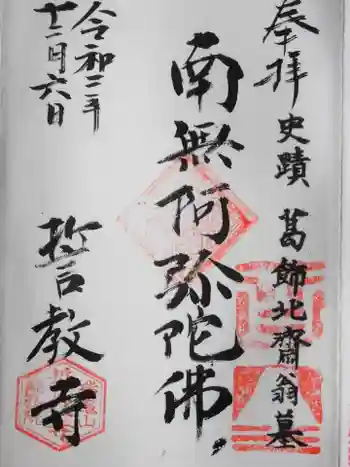 奉拝 史蹟 葛飾北齋翁墓
南無阿弥陀佛
令和二年
十二月六日
誓教寺